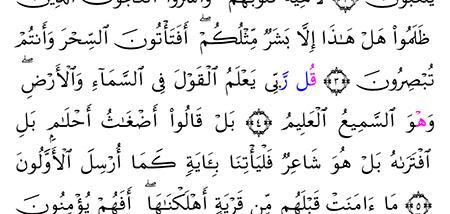 يَلْعَبُونَ ﴿٢﴾ لَاهِيَةً قُلُوبُهُمْ ۗ وَأَسَرُّوا۟ ٱلنَّجْوَى ٱلَّذِينَ
ظَلَمُوا۟ هَلْ هَـٰذَآ إِلَّا بَشَرٌ مِّثْلُكُمْ ۖ أَفَتَأْتُونَ ٱلسِّحْرَ وَأَنتُمْ
تُبْصِرُونَ ﴿٣﴾ قُل رَّبِّى يَعْلَمُ ٱلْقَوْلَ فِى ٱلسَّمَآءِ وَٱلْأَرْضِ ۖ
وَهْوَ ٱلسَّمِيعُ ٱلْعَلِيمُ ﴿٤﴾ بَلْ قَالُوٓا۟ أَضْغَـٰثُ أَحْلَـٰمٍۭ بَلِ
ٱفْتَرَىٰهُ بَلْ هُوَ شَاعِرٌ فَلْيَأْتِنَا بِـَٔايَةٍ كَمَآ أُرْسِلَ ٱلْأَوَّلُونَ
﴿٥﴾ مَآ ءَامَنَتْ قَبْلَهُم مِّن قَرْيَةٍ أَهْلَكْنَـٰهَآ ۖ أَفَهُمْ يُؤْمِنُونَ